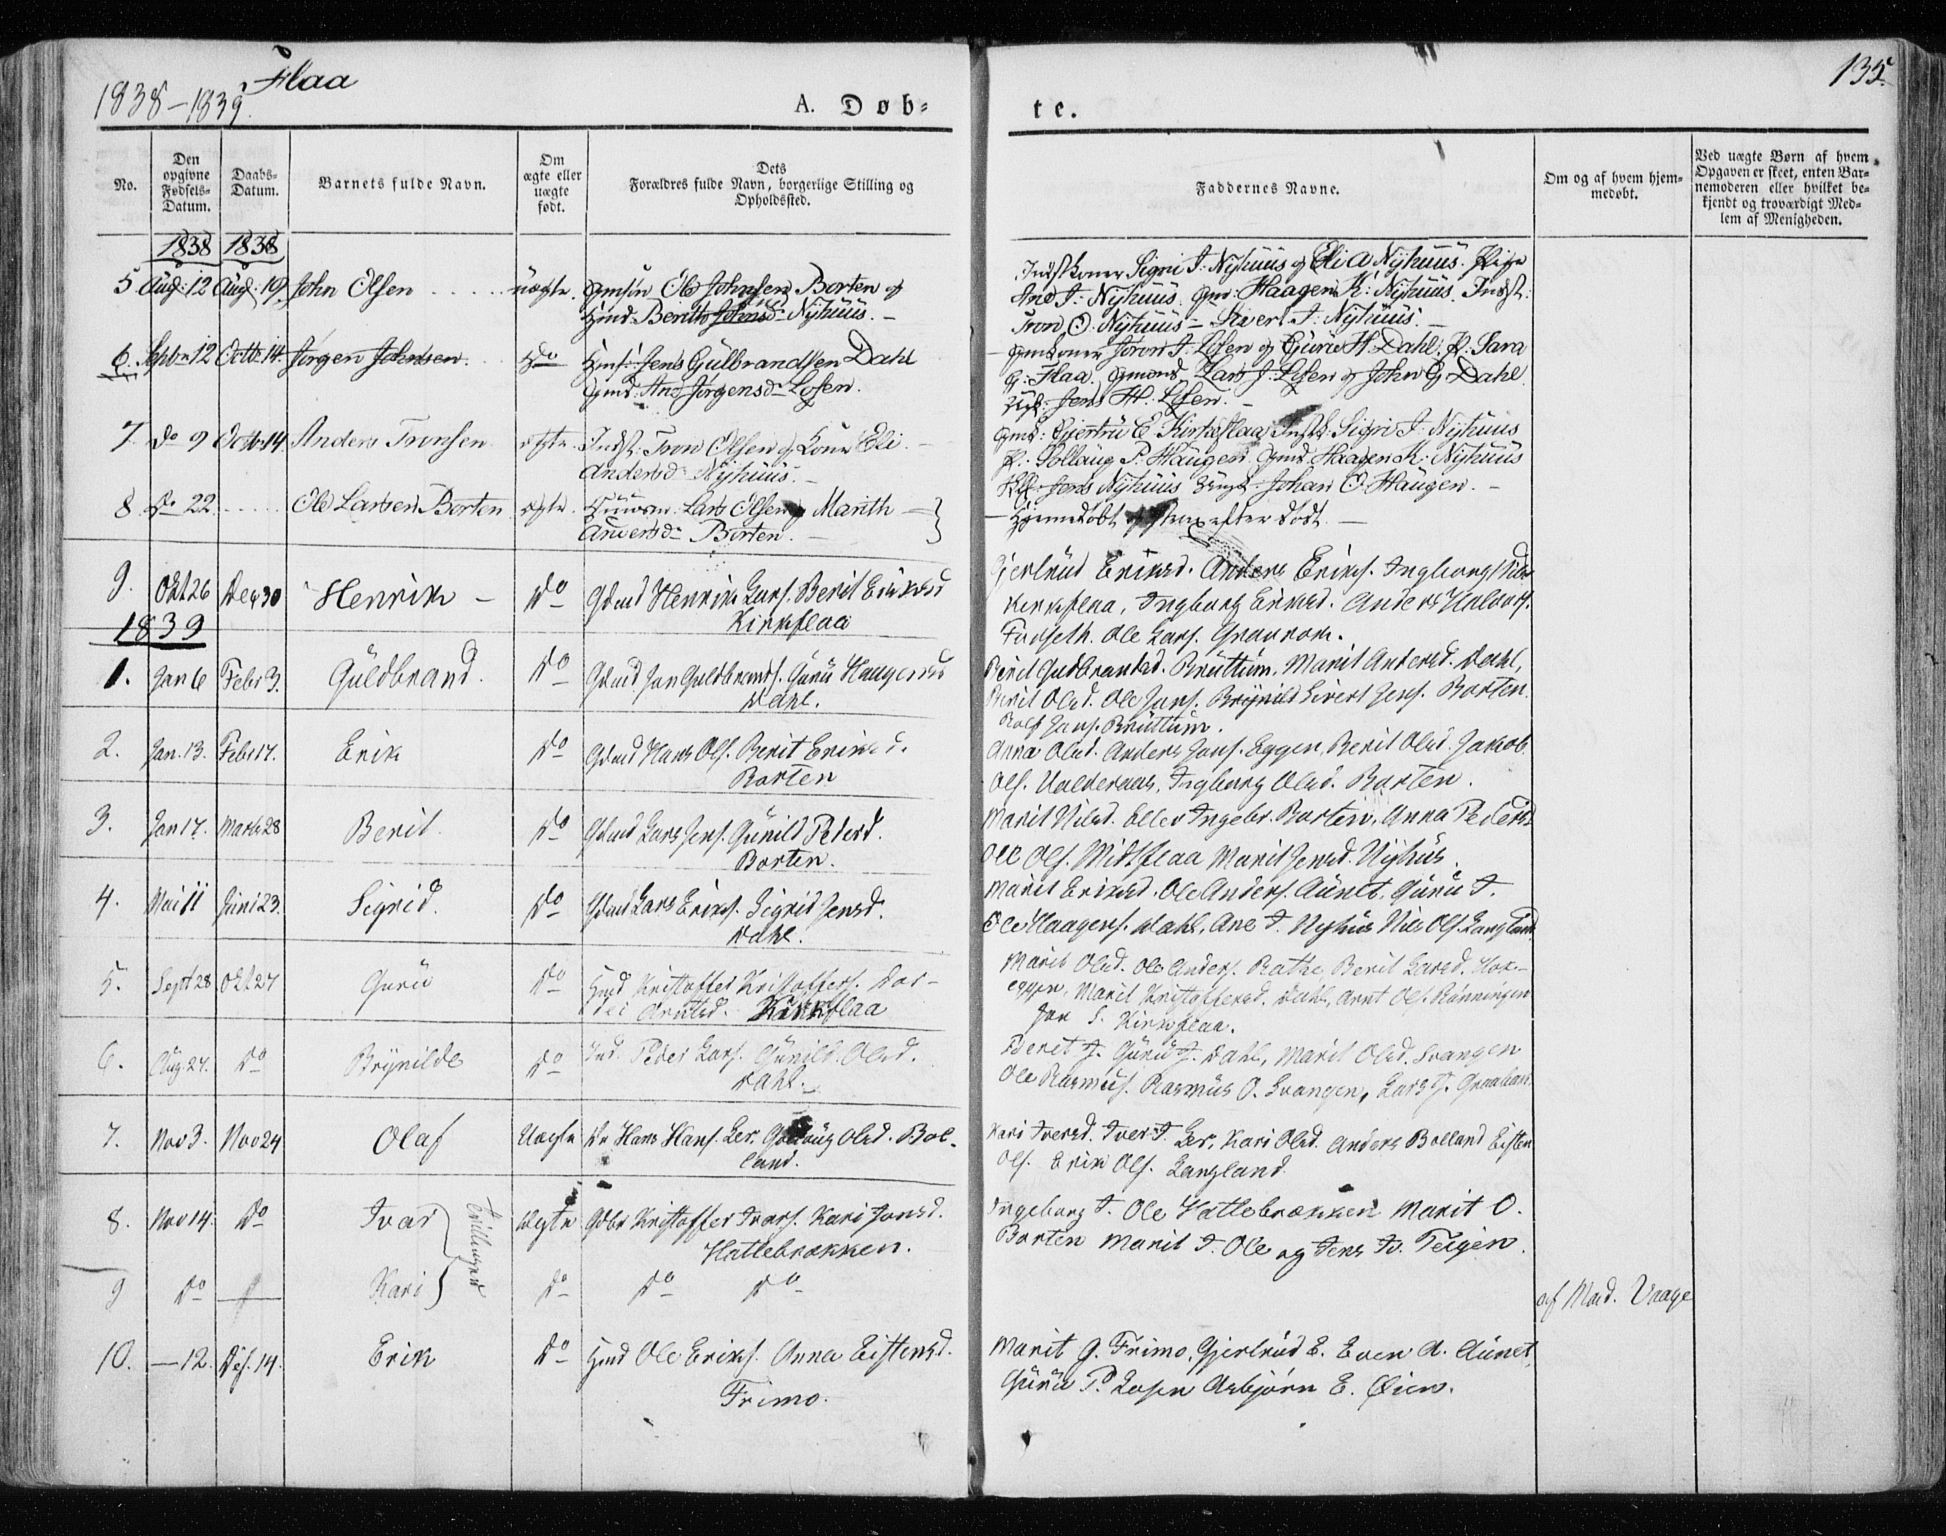 1838-1839. Flaa
A. Døb-
te.
135.
No.
Den opgivne Fødsels-Datum.
Daabs-Datum.
Barnets fulde Navn.
Om ægte eller uægte født.
Dets Forældres fulde Navn, borgerlige Stilling og Opholdssted.
Faddernes Navne.
Om og af hvem hjemmedøbt.
Ved uægte Børn af hvem Opgaven er skeet, enten Barnemoderen eller hvilket bekjendt og troværdigt Medlem af Menigheden.
1838 1838
5. Aug: 12 Aug: 19, John Olsen uægte. Ole Johnsen Borten og
Berith Nyhuus.
Sigri J: Nyhuus og Eli A Nyhuus. Pige
Ane J: Nyhuus. Gmd: Haagen K: Nyhuus. Indst:
Tron O. Nyhuus - Siver J: Nyhuus.
6. Septbr 12 Octbr 14. Jørgen Jensen. Do Jens Gulbrandsen Dahl
Ane Jørgensd. Losen.
J. Losen og Guru H. Dahl. P. Sara
G: Flaa. Lars J: Losen og John G. Dahl
Jens H: Losen.
7. Do 9 Octbr 14. Anders Tronsen ægte. Indst: Tron Olsen og Kone Eli
Andersd. Nyhuus.
E Kirkeflaa Indst: Sigri J: Nyhuus
P. Haugen. Gmd. Haagen K: Nyhuus
Jens Nyhuus Johan O. Haugen.
8. Do 22. Ole Larsen Borten ægte. Lars Olsen og Marith
Borten.
Hjemmedøbt og strax efter død.
9. Okt 26 Dec 30 Henrik Do Gdmd Henrik Lars. Berit Eriksd
Kirkflaa
Gjertrud Eriksd. Anders Eriks. Ingborg
Kirkflaa, Ingborg Eriksd. Anders
Ole Lars. Gravrok.
1839
1. Jan 6 Febr 3. Guldbrand. Do Gdmd Jon Guldbrands. Guru Haagensd
Dahl.
Berit Gudbrandsd. Bruttum, Marit Andersd. Dahl,
Berit Olsd. Ole Jans. Brynild Sivert Jens. Borten.
Rolf Jans. Bruttum.
2. Jan. 13. Febr 17. Erik Do Gdmd Hans Ols. Berit Eriksd.
Borten
Anna Olsd. Anders Jans. Eggen, Berit Olsd. Jakob
Ols. Valderaas, Ingborg Olsd. Borten.
3. Jan 17. Marts 28 Berit Do Gdmd Lars Jens. Gunild Pedersd.
Borten.
Marit Nilsd. Ellev Ingebr. Borten, Anna Pedersd.
Ole Ols. Midtflaa Marit Jensd. Nyhus.
4. Mai 11 Juni 23. Sigrid. Do Gdmd Lars Eriks. Sigrid Jensd.
Dahl.
Marit Eriksd. Ole Anders. Aunet. Guru J.
Ole Haagens. Dahl, Ane J. Nyhus Nils Ols. Langland
5. Sept 28 Okt 27 Guru Do Hmd Kristoffer Kristoffers. Dor-
dei Arntsd. Kirkflaa
Marit Olsd. Ole Anders. Rathe, Berit Larsd. Hok-
eggen, Marit Kristoffersd. Dahl, Arnt Ols. Rønningen
Jon S. Kirkflaa.
6. Aug. 27. Do Brynilde Do Ind. Peder Lars. Gunild Olsd.
Dahl.
Beret J. Guru J. Dahl, Marit Olsd. Svangen
Ole Rasmus. Rasmus O. Svangen, Lars J.
7. Nov 3. Nov 24 Olaf Uægte Hans Hans. Ler. Olsd. Bol-
land.
Kari Iversd. Iver J. Ler, Kari Olsd. Anders Bolland Eisten
Ols. Erik Ols. Langland
8. Nov 14. Do Ivar Tvillinger Ægte Gdbr Kristoffer Ivars. Kari Jonsd.
Hattebrækken.
Ingeborg J. Ole Hattebrækken Marit O.
Borten Marit J. Ole og Jens Jo. Teigen.
9 Do Kari Do Do Do
af Mad. Vaage
10. — 12. Des. 14. Erik Do Hmd Ole Eriks. Anna Eistensd.
Frimo.
Marit G. Frimo, Gjertrud E. Even A. Aunet
Guru P. Losen Asbjørn E. Øien.